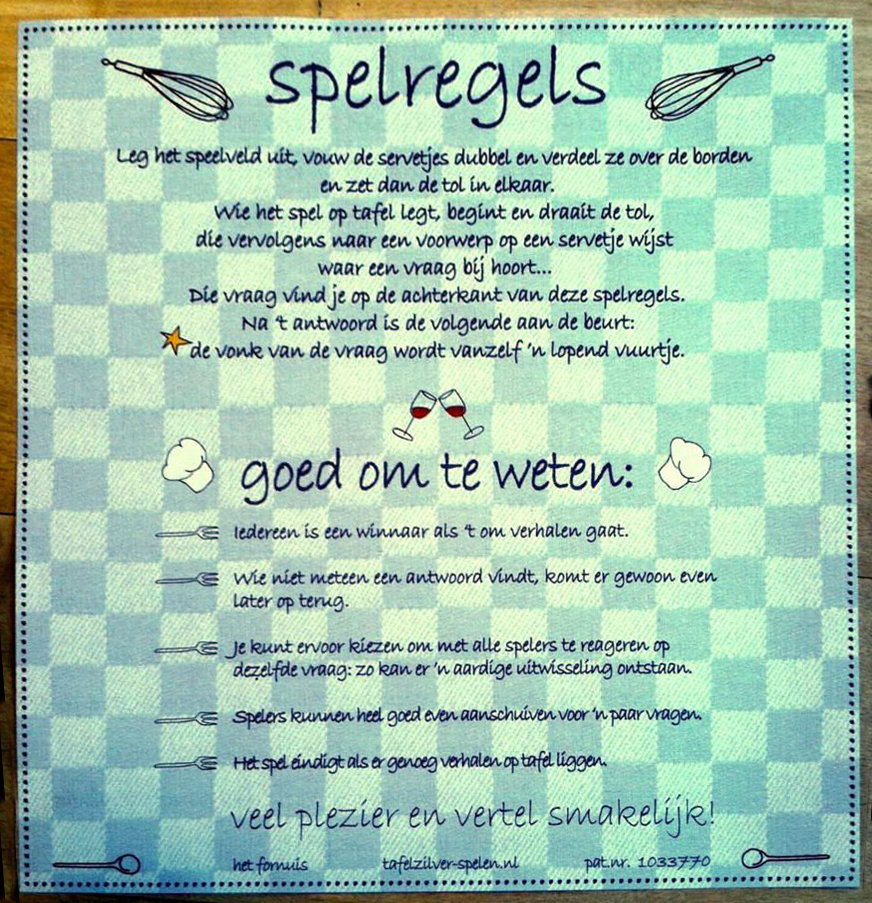 spelregels
Leg het speelveld uit, vouw de servetjes dubbel en verdeel ze over de borden
en zet dan de tol in elkaar.
Wie het spel op tafel legt, begint en draait de tol,
die vervolgens naar een voorwerp op een servetje wijst
waar een vraag bij hoort...
Die vraag vind je op de achterkant van deze spelregels.
Na 't antwoord is de volgende aan de beurt:
de vonk van de vraag wordt vanzelf 'n lopend vuurtje.
goed om te weten:
Iedereen is een winnaar als 't om verhalen gaat.
Wie niet meteen een antwoord vindt, komt er gewoon even
later op terug.
Je kunt ervoor kiezen om met alle spelers te reageren op
dezelfde vraag: zo kan er 'n aardige uitwisseling ontstaan.
Spelers kunnen heel goed even aanschuiven voor 'n paar vragen.
Het spel eindigt als er genoeg verhalen op tafel liggen.
veel plezier en vertel smakelijk!
het fornuis tafelzilver-spelen.nl pat.nr. 1033770